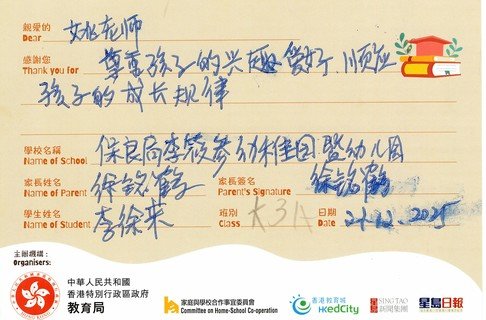 親愛的 姚老师
Dear
感謝您 尊重孩子的兴趣爱好,顺应
Thank you for
孩子的成长规律
學校名稱 保良局李筱參幼稚园暨幼儿园
Name of School
家長姓名 徐銘鹤 家長簽名 徐銘鹤
Name of Parent Parent's Signature
學生姓名 李徐来 班別 K3A 日期 21.12.2025
Name of Student Class Date
主辦機構:
Organisers:
中華人民共和國
香港特別行政區政府
教育局
家庭與學校合作事宜委員會
Committee on Home-School Co-operation
香港教育城
HKedCity
星島 SING TAO
新聞集團
星島日報